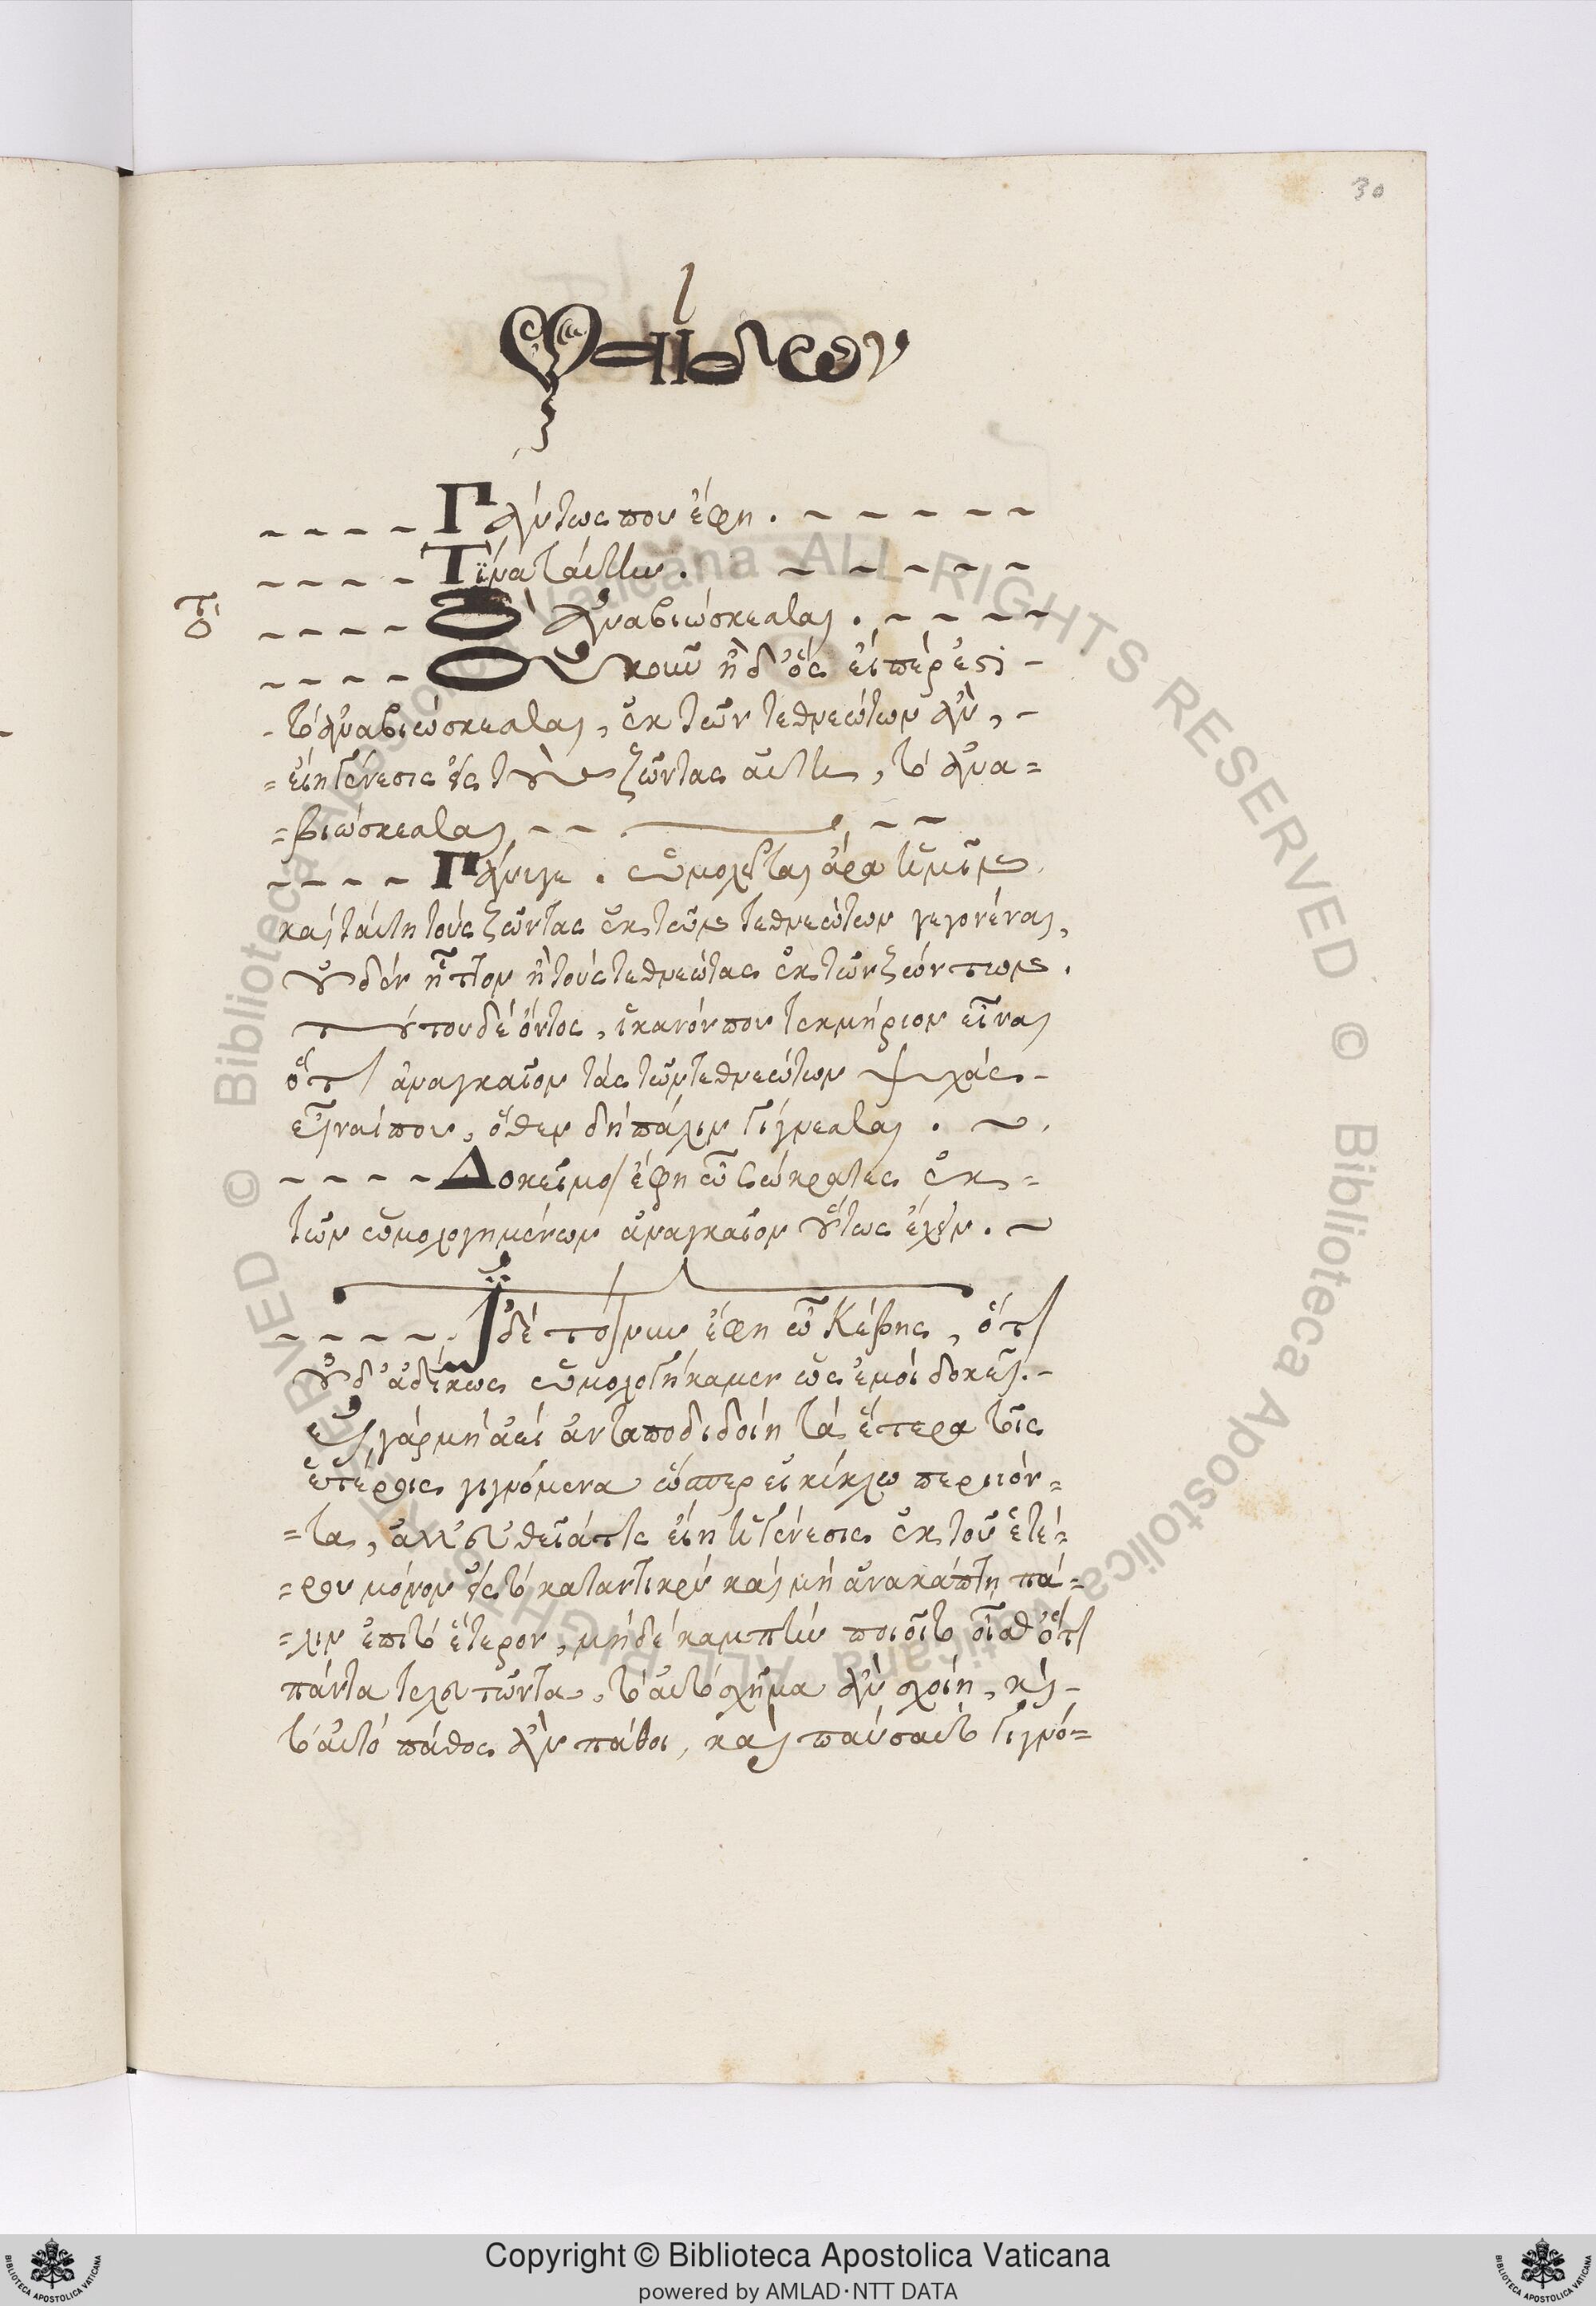 30
Φαίδων
Πάντως που ἔφη .
Τίνα ταύτην .
τὸ
Ὸ ἀναβιώσκεσθαι .
Οὐκοῦν ἦ δ' ὃς εἰπὲρ ἐστὶ
τὸ ἀναβιώσκεσθαι, ἐκ τῶν τεθνεώτων ἂν,
= εἴη γένεσις εἰς τοὺς ζῶντας αὕτη, τὸ ἀνα=
=βιώσκεσθαι
Πάνυγε . ὡμολογεῖται ἄρα ἡμῖν
καὶ ταύτη τοὺς ζῶντας ἐκ τῶν τεθνεώτων γεγονέναι,
οὐδὲν ἧττον ἢ τοὺς τεθνεῶτας ἐκ τῶν ζώντων .
τούτου δὲ ὄντος, ἱκανόν που τεκμήριον εἶναι
ὅτι ἀναγκαῖον τὰς τῶν τεθνεώτων ψυχὰς
εἶναί που, ὅθεν δὴ πάλιν γίγνεσθαι .
Δοκεῖ μοι ἔφη ὦ Σώκρατες ἐκ =
τῶν ὡμολογημένων ἀναγκαῖον οὕτως ἔχειν .
Ἰδὲ τοίνυν ἔφη ὦ Κέβης, ὅτι
οὐδ' ἀδίκως ὡμολογήκαμεν ὡς ἐμοὶ δοκεῖ .
εἰ γὰρ μὴ ἀεὶ ἀνταποδιδοίη τὰ ἕτερα τοῖς
ἑτέροις γιγνόμενα ὥσπερεὶ κύκλω περιιόν=
=τα, ἀλλ' εὐθεῖά τις εἴη ἡ γένεσις ἐκ τοῦ ἑτέ=
=ρου μόνον εἰς τὸ καταντικρὺ καὶ μὴ ἀνακάπτη πά=
=λιν ἐπὶ τὸ ἕτερον, μηδὲ καμπτὴν ποιοῖτο οἶσθ' ὅτι
πάντα τελευτῶντα, τὸ αὐτὸ σχῆμα ἂν σχοίη, καὶ
τὸ αὐτὸ πάθος ἂν πάθοι, καὶ παύσαιτο γιγνό=
Copyright © Biblioteca Apostolica Vaticana
powered by AMLAD·NTT DATA